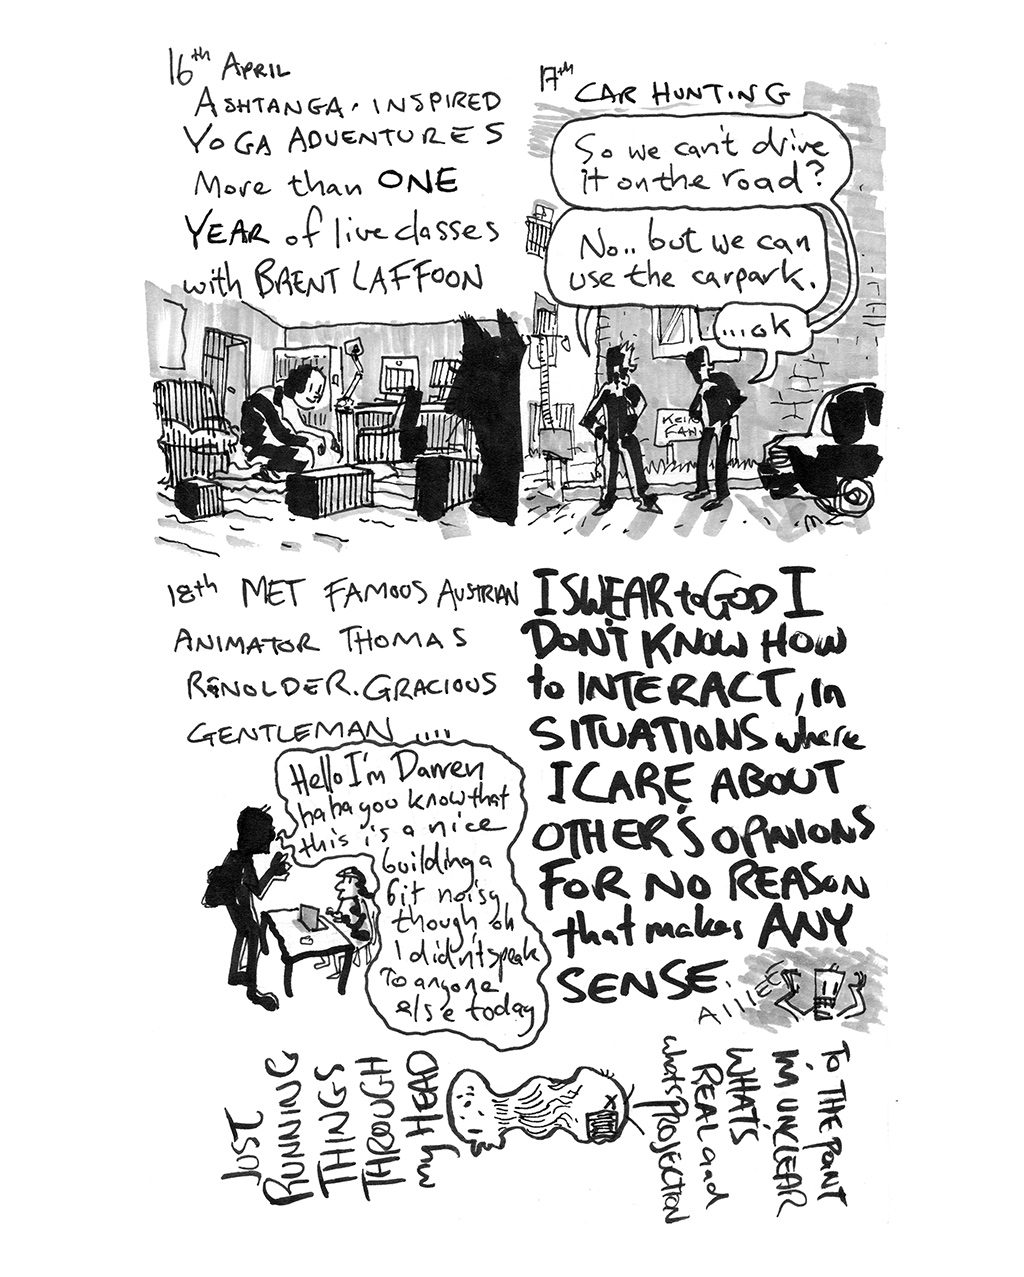 16th APRIL
ASHTANGA. INSPIRED
YOGA ADVENTURES
MORE than ONE
YEAR of live classes
with BRENT LAFFOON
17th CAR HUNTING
So we can't drive
it on the road?
No.. but we can
use the carpark.
...ok
18th MET FAMOUS AUSTRIAN
ANIMATOR THOMAS
RENOLDER. GRACIOUS
GENTLEMAN ....
Hello I'm Darren
haha you know that
this is a nice
building a
bit noisy
though oh
I didn't speak
To anyone
else today
I SWEAR to GOD I
DON'T KNOW HOW
to INTERACT, in
SITUATIONS where
I CARE ABOUT
OTHER'S OPINIONS
FOR NO REASON
that makes ANY
SENSE.
AIIIEE
JUST
RUNNING
THINGS
THROUGH
my HEAD
TO THE POINT
IM UNCLEAR
WHAT'S
REAL and
whats PROJECTION